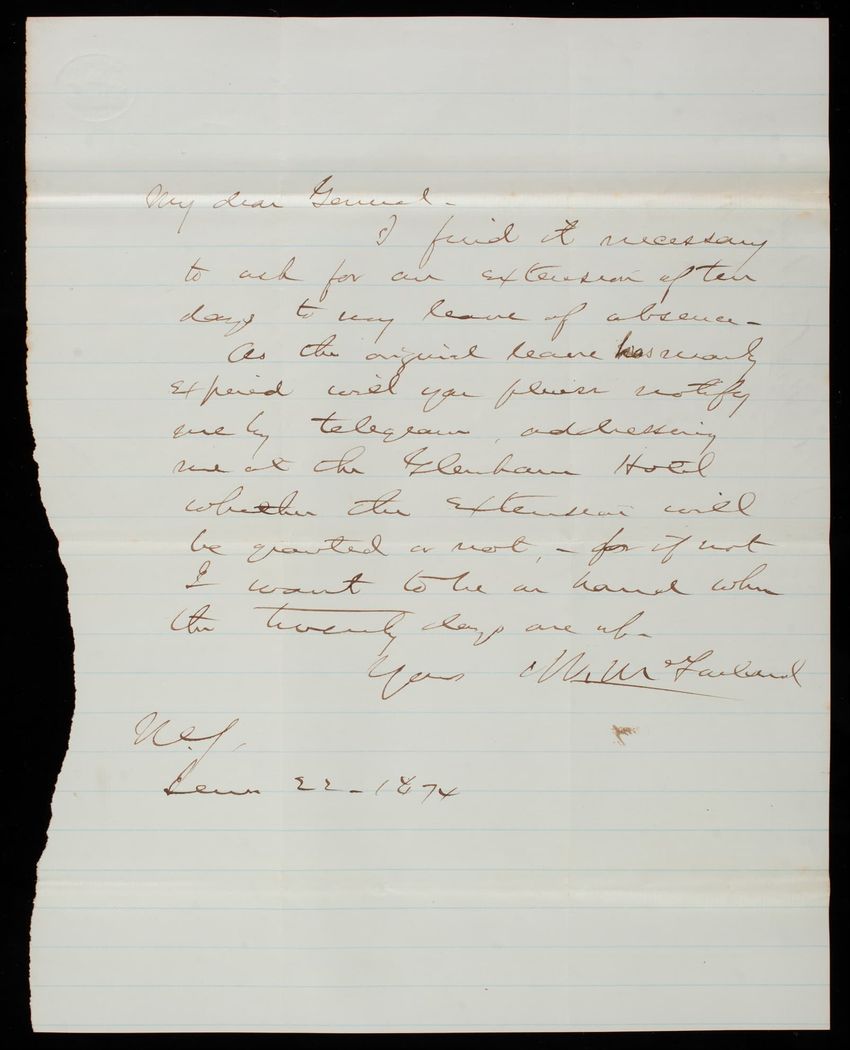 My dear General -
I find it necessary
to ask for an extension of ten
days to my leave of absence -
As the original leave has nearly
expired will you please notify
me by telegram, addressing
me at the Glenham Hotel
whether the extension will
be granted or not, - for if not
I want to be on hand when
the twenty days are up -
Yours W. McFarland
N.Y.
22 - 1874